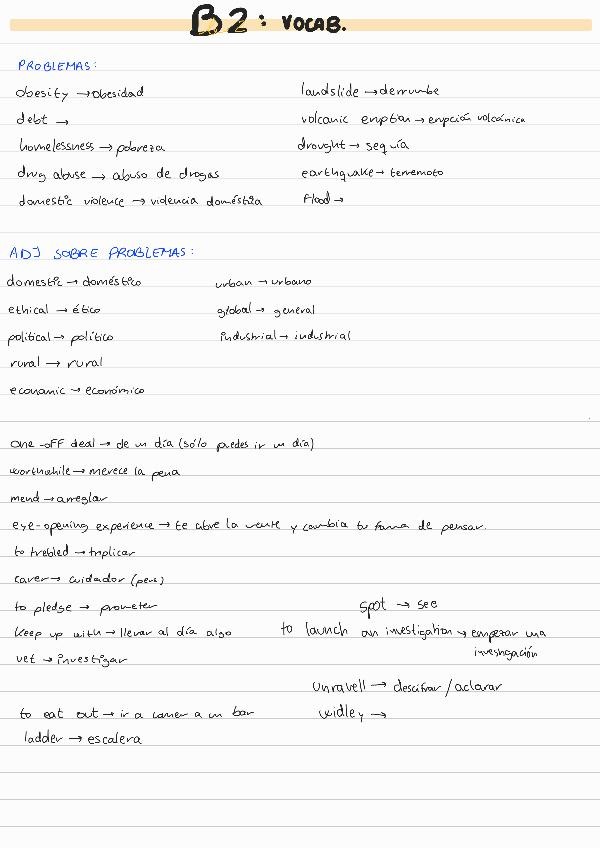 B2: VOCAB.
PROBLEMAS:
obesity → obesidad
debt →
homelessness → pobreza
drug abuse → abuso de drogas
domestic violence → violencia doméstica
landslide → derrumbe
volcanic eruption → erupción volcánica
drought → sequía
earthquake → terremoto
Flood →
ADJ SOBRE PROBLEMAS:
domestic → doméstico
ethical → ético
political → político
rural → rural
economic → económico
urban → urbano
global → general
industrial → industrial
one-off deal → de un día (sólo puedes ir un día)
worthwhile → merece la pena
mend → arreglar
eye-opening experience → te abre la mente y cambia tu forma de pensar.
to trebled → triplicar
carer → cuidador (pers)
to pledge → prometer
Keep up with → llevar al día algo
vet → investigar
to eat out → ir a comer a un bar
ladder → escalera
spot → see
to launch an investigation → empezar una
investigación
unravell → descifrar / aclarar
widley →